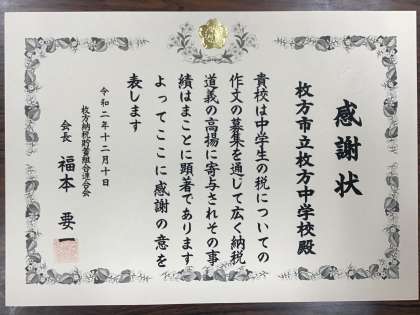 感謝状
枚方市立枚方中学校殿
貴校は中学生の税についての
作文の募集を通じて広く納税
道義の高揚に寄与されその事
績はまことに顕著であります
よってここに感謝の意を
表します
令和二年十二月十日
枚方納税貯蓄組合連合会
会長 福本 要一